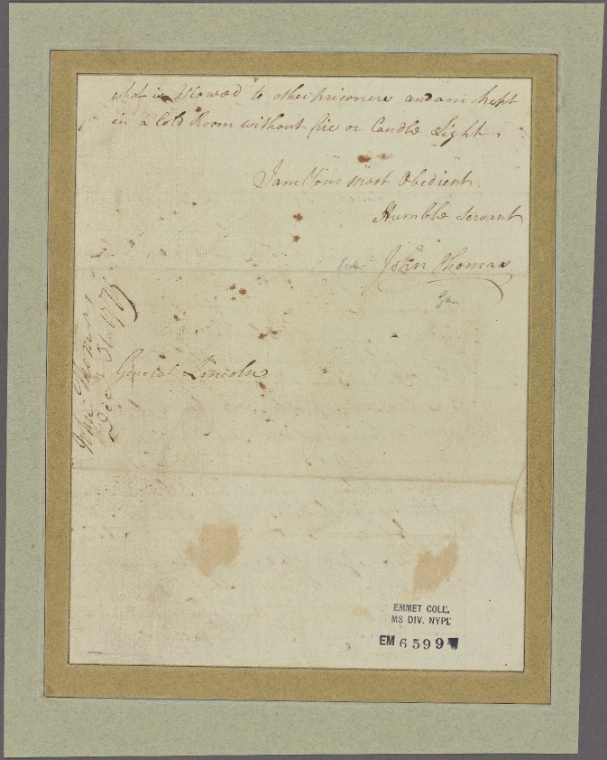 what is alowed to other prisoners and am kept
in a Cold Room without fire or Candle Light.
I am Your most Obedient
Humble Servant
John Thomas
Ga
General Lincoln
John Thomas
EMMET COLL.
MS DIV. NYPL
EM 6599